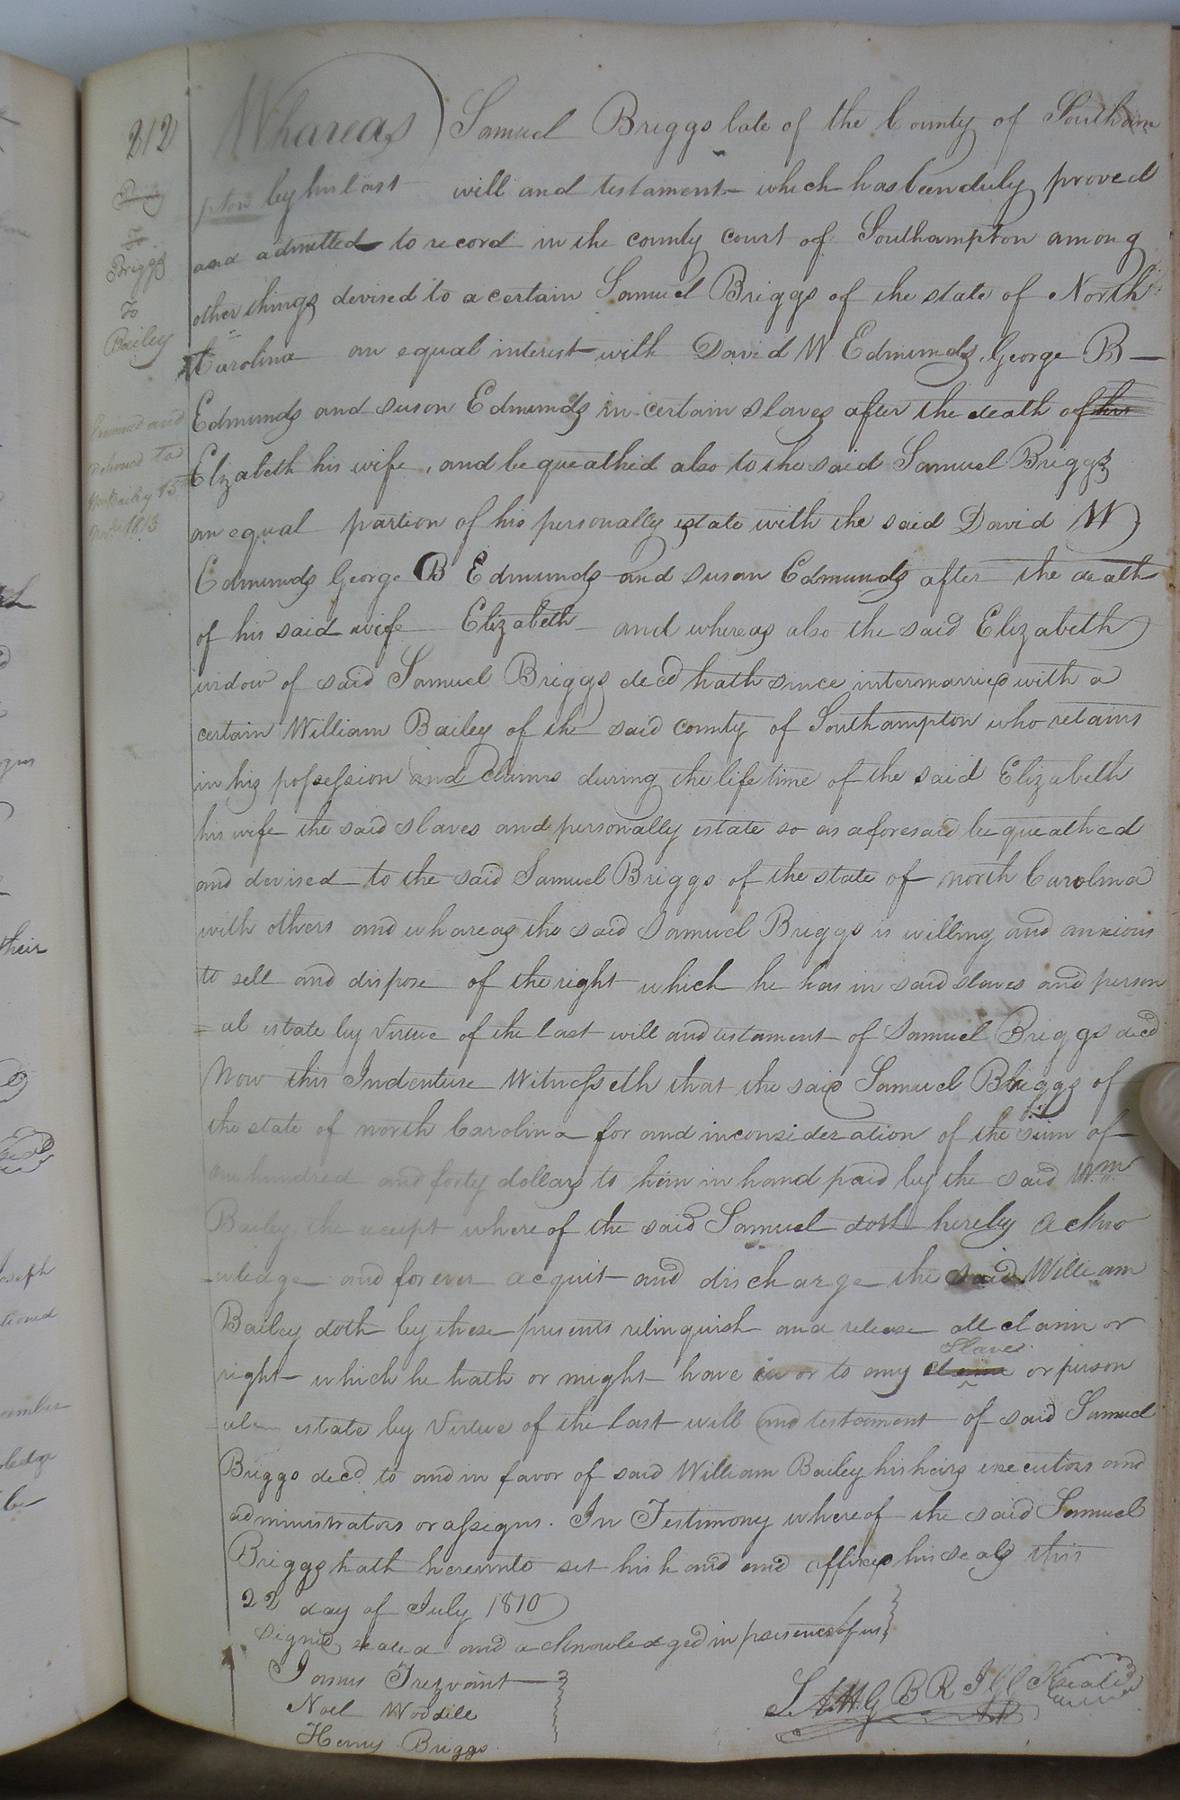 212
Briggs
To
Bailey
Whareas Samuel Briggs late of the County of Southam
pton by his last will and testament which has been duly proved
and admitted to record in the county court of Southampton among
other things devised to a certain Samuel Briggs of the state of North
Carolina an equal interest with David W Edmunds, George B
Edmunds and Suson Edmunds in certain slaves after the death of his
Elzabeth his wife, and bequeathed also to the said Samuel Briggs
an equal partion of his personally estate with the said David W
Edmunds George B Edmunds and Susan Edmunds after the death
of his said wife Elizabeth and whereas also the said Elizabeth
widow of said Samuel Briggs decd hath since intermarried with a
certain William Bailey of the said county of Southampton who retains
in his possession and claims during the lifetime of the said Elizabeth
his wife the said slaves and personally estate so as aforesaid bequeathed
and devised to the said Samuel Briggs of the state of north Carolina
with others and whareas the said Samuel Briggs is willing and anxious
to sell and dispose of the right which he has in said slaves and person
=al estate by Virtue of the last will and testament of Samuel Briggs decd
Now this Indenture Witnesseth that the said Samuel Briggs of
the state of north Carolina for and in consideration of the sum of
one hundred and forty dollars to him in hand paid by the said Wm
Bailey the receipt where of the said Samuel doth hereby ackno
wledge and for ever acquit and discharge the said William
Bailey doth by these presents relinquish and release all claim or
Slaves
right which he hath or might have in or to any or person
al estate by Virtue of the last will and testament of said Samuel
Briggs decd to and in favor of said William Bailey his heirs executors and
administrators or assigns. In Testimony whereof the said Samuel
Briggs hath hereunto set his hand and affixed his seal this
22 day of July 1810
Signed sealed and acknowledged in presence of us
James Trezvant
Noel Woodell
Henry Briggs
SAMG BRIGG Seal